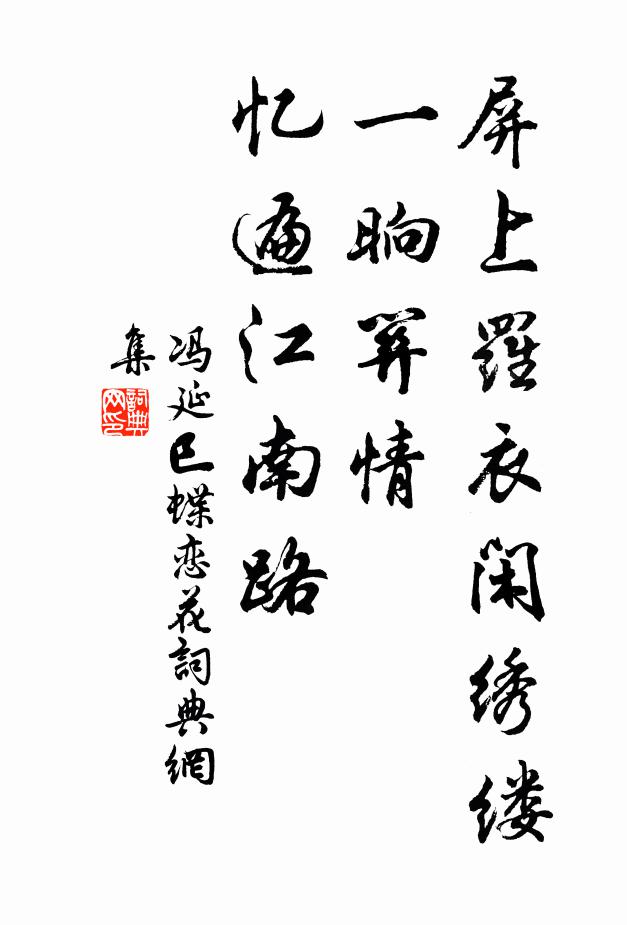 屏上羅衣閑绣缕
一晌关情
忆遍江南路
冯延巳蝶恋花詞典網
集
詞典
网印